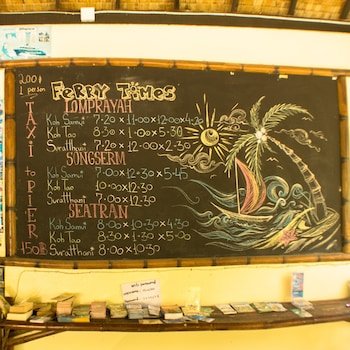 200฿
1 person
TAXI to PIER
150฿
FERRY TIMES
LOMPRAYAH
Koh Samui 7·20 × 11·00 × 12·00 × 4·20
Koh Tao 8·30 × 1·00 × 5·30
Suratthani 7·20 × 11·00 × 2·20
SONGSERM
Koh Samui 7·00 × 12·30 × 5·45
Koh Tao 10·00 × 12·30
Suratthani 7·00 × 12·30
SEATRAN
Koh Samui 8·00 × 10·30 × 4·30
Koh Tao 8·30 × 1·30
Suratthani 8·00 × 10·30